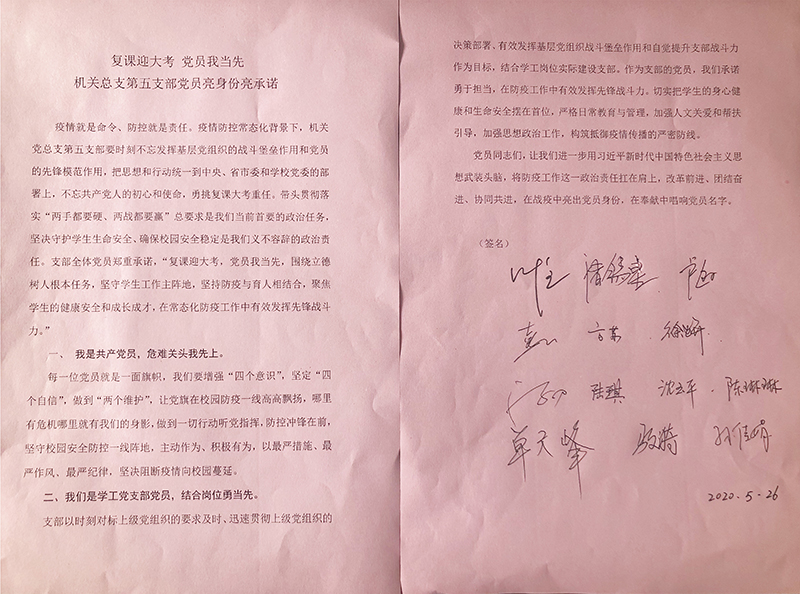 复课迎大考 党员我当先
机关总支第五支部党员亮身份亮承诺
疫情就是命令、防控就是责任。疫情防控常态化背景下，机关
党总支第五支部要时刻不忘发挥基层党组织的战斗堡垒作用和党员
的先锋模范作用，把思想和行动统一到中央、省市委和学校党委的部
署上，不忘共产党人的初心和使命，勇挑复课大考重任。带头贯彻落
实“两手都要硬、两战都要赢”总要求是我们当前首要的政治任务，
坚决守护学生生命安全、确保校园安全稳定是我们义不容辞的政治责
任。支部全体党员郑重承诺，“复课迎大考，党员我当先，围绕立德
树人根本任务，坚守学生工作主阵地，坚持防疫与育人相结合，聚焦
学生的健康安全和成长成才，在常态化防疫工作中有效发挥先锋战斗
力。”
一、 我是共产党员，危难关头我先上。
每一位党员就是一面旗帜，我们要增强“四个意识”，坚定“四
个自信”，做到“两个维护”，让党旗在校园防疫一线高高飘扬，哪里
有危机哪里就有我们的身影，做到一切行动听党指挥，防控冲锋在前，
坚守校园安全防控一线阵地，主动作为、积极有为，以最严措施、最
严作风、最严纪律，坚决阻断疫情向校园蔓延。
二、我们是学工党支部党员，结合岗位勇当先。
支部以时刻对标上级党组织的要求及时、迅速贯彻上级党组织的
决策部署、有效发挥基层党组织战斗堡垒作用和自觉提升支部战斗力
作为目标，结合学工岗位实际建设支部。作为支部的党员，我们承诺
勇于担当，在防疫工作中有效发挥先锋战斗力。切实把学生的身心健
康和生命安全摆在首位，严格日常教育与管理，加强人文关爱和帮扶
引导，加强思想政治工作，构筑抵御疫情传播的严密防线。
党员同志们，让我们进一步用习近平新时代中国特色社会主义思
想武装头脑，将防疫工作这一政治责任扛在肩上，改革前进、团结奋
进、协同共进，在战疫中亮出党员身份，在奉献中唱响党员名字。
（签名）
方苏
陆琪 沈立平 陈琳琳
单天峰
2020.5.26